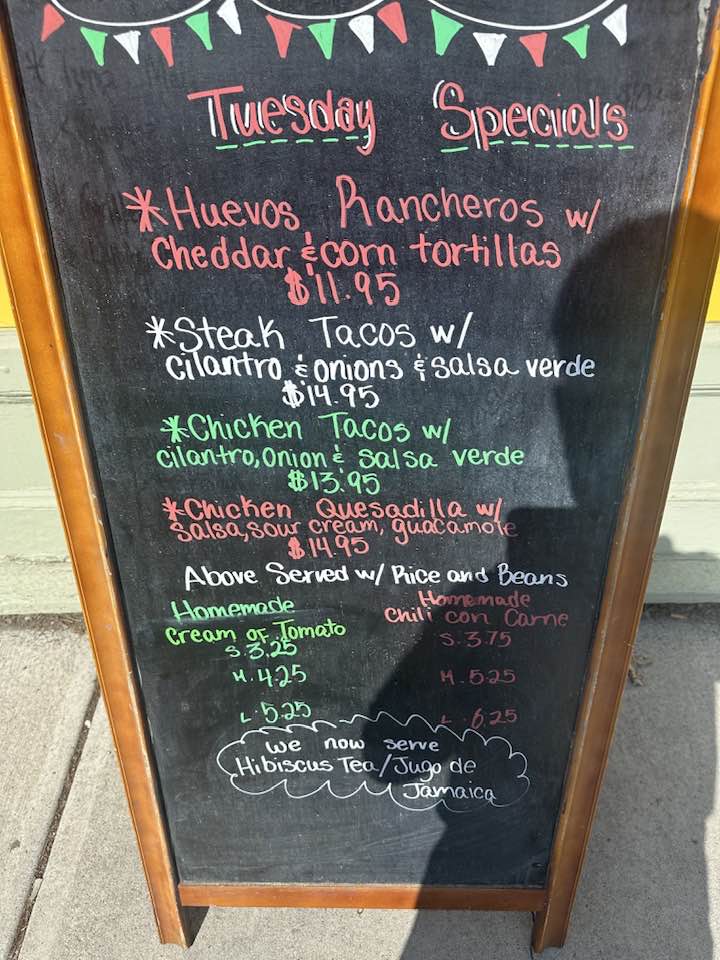 Tuesday Specials
*Huevos Rancheros w/
Cheddar & corn tortillas
$11.95
*Steak Tacos w/
cilantro & onions & salsa verde
$14.95
*Chicken Tacos w/
cilantro, onion & salsa verde
$13.95
*Chicken Quesadilla w/
salsa, sour cream, guacamole
$14.95
Above Served w/ Rice and Beans
Homemade
Cream of Tomato
S. 3.25
M. 4.25
L. 5.25
Homemade
Chili con Carne
S. 3.75
M. 5.25
L. 6.25
we now serve
Hibiscus Tea/Jugo de
Jamaica